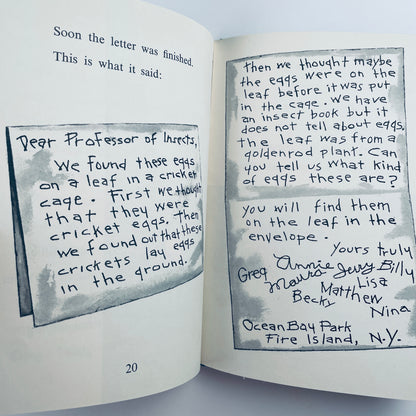 Soon the letter was finished.
This is what it said:
Dear Professor of Insects,
We found these eggs
on a leaf in a cricket
cage. First we thought
that they were
cricket eggs. Then
we found out that these
crickets lay eggs
in the ground.
20
Then we thought maybe
the eggs were on the
leaf before it was put
in the cage. We have
an insect book but it
does not tell about eggs.
the leaf was from a
goldenrod plant. Can
you tell us what kind
of eggs these are?
you will find them
on the leaf in the
envelope.
Yours truly
Greg Annie Jerry Billy
Maura Lisa
Becky Matthew
Nina
Ocean Bay Park
Fire Island, N.Y.